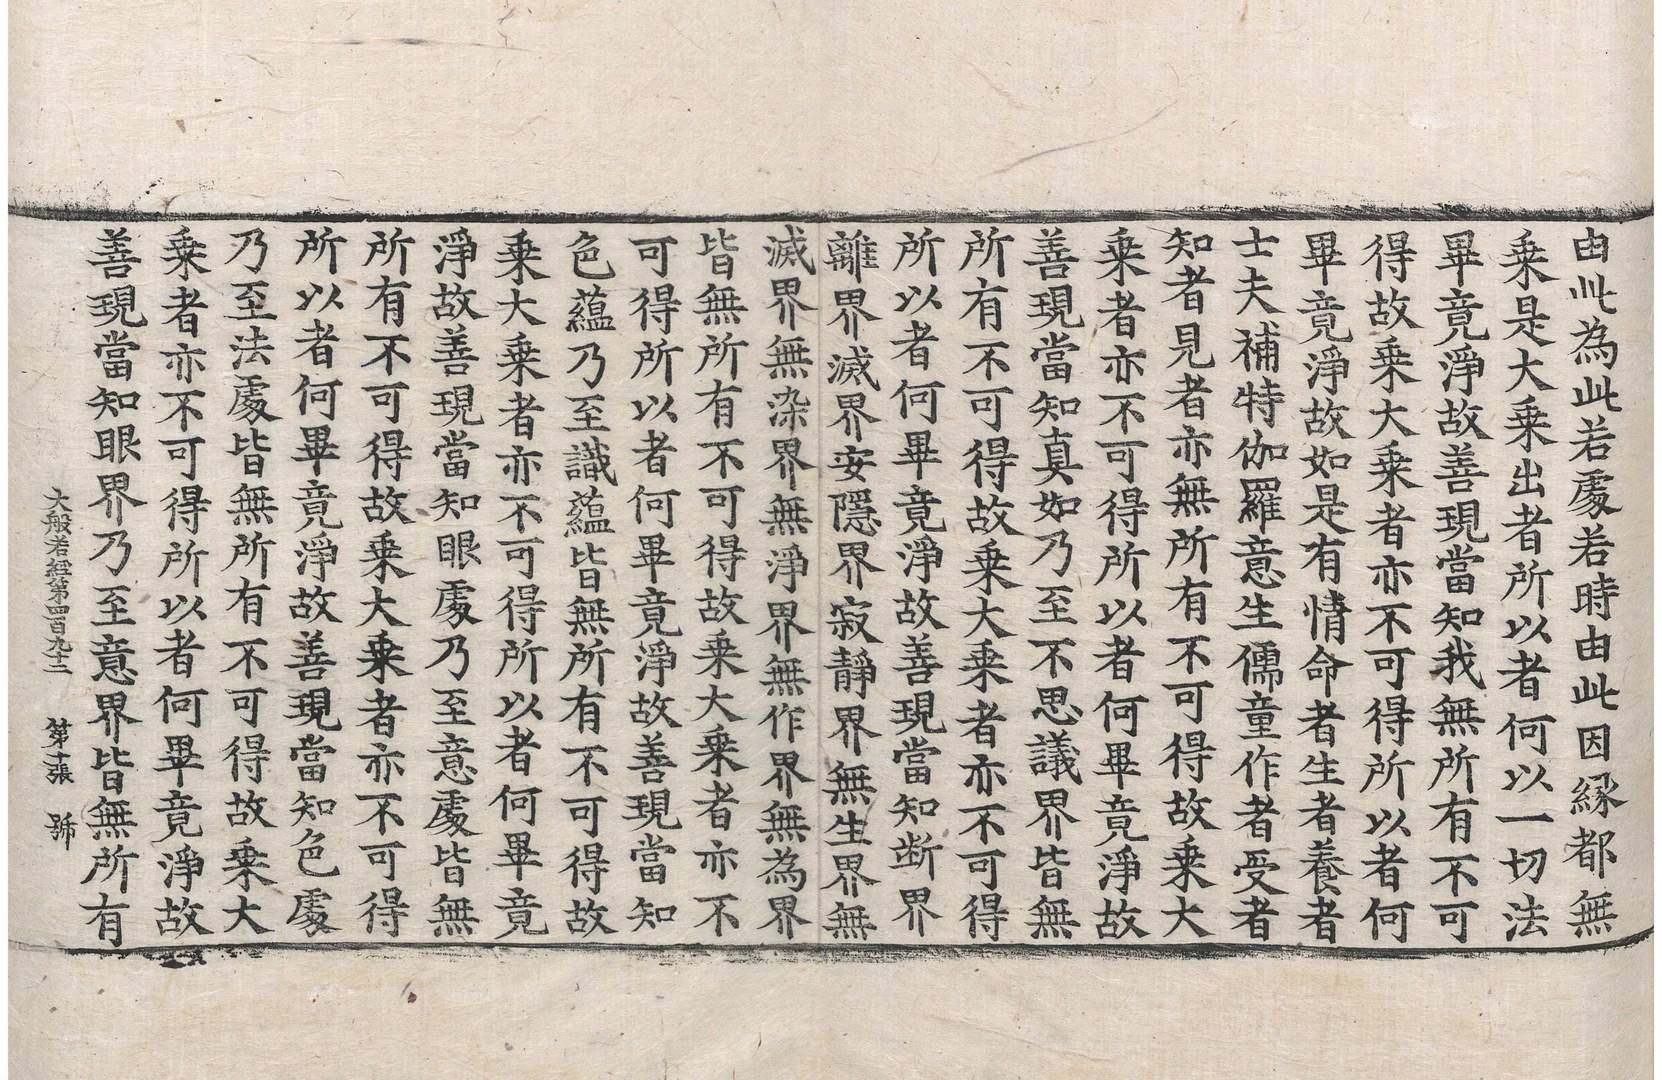 由此為此若處若時由此因緣都無
乘是大乘出者所以者何以一切法
畢竟淨故善現當知我無所有不可
得故乘大乘者亦不可得所以者何
畢竟淨故如是有情命者生者養者
士夫補特伽羅意生儒童作者受者
知者見者亦無所有不可得故乘大
乘者亦不可得所以者何畢竟淨故
善現當知真如乃至不思議界皆無
所有不可得故乘大乘者亦不可得
所以者何畢竟淨故善現當知断界
離界滅界安隱界寂靜界無生界無
滅界無染界無淨界無作界無為界
皆無所有不可得故乘大乘者亦不
可得所以者何畢竟淨故善現當知
色蘊乃至識蘊皆無所有不可得故
乘大乘者亦不可得所以者何畢竟
淨故善現當知眼處乃至意處皆無
所有不可得故乘大乘者亦不可得
所以者何畢竟淨故善現當知色處
乃至法處皆無所有不可得故乘大
乘者亦不可得所以者何畢竟淨故
善現當知眼界乃至意界皆無所有
大般若經第四百九十二 第十張 號